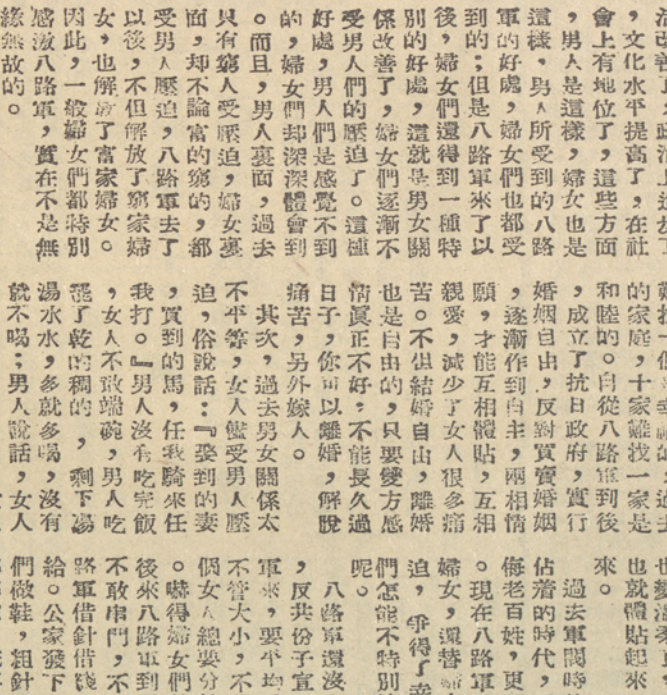 ，文化水平提高了，在社
會上有地位了，這些方面
，男人是這樣，婦女也是
這樣，男人所受到的八路
軍的好處，婦女們也都受
到的；但是八路軍來了以
後，婦女們還得到一種特
別的好處，這就是男女關
係改善了，婦女們逐漸不
受男人們的壓迫了。這種
好處，男人們是感覺不到
的，婦女們却深深體會到
。而且，男人裏面，過去
只有窮人受壓迫，婦女裏
面，却不論富的窮的，都
受男人壓迫，八路軍去了
以後，不但解放了窮家婦
女，也解放了富家婦女。
因此，一般婦女們都特別
感激八路軍，實在不是無
緣無故的。
的家庭，十家難找一家是
和睦的。自從八路軍到後
，成立了抗日政府，實行
婚姻自由，反對買賣婚姻
，逐漸作到自主，兩相情
願，才能互相體貼，互相
親愛，減少了女人很多痛
苦。不但結婚自由，離婚
也是自由的，只要雙方感
情眞正不好；不能長久過
日子，你可以離婚，解脫
痛苦，另外嫁人。
其次，過去男女關係太
不平等，女人儘受男人壓
迫，俗說話：『娶到的妻
，買到的馬，任我騎來任
我打。』男人沒有吃完飯
，女人不敢端碗，男人吃
罷了乾的稠的，剩下湯
湯水水，多就多喝，沒有
就不喝；男人說話，女人
也就體貼起來
來。
過去軍閥時
佔着的時代，
侮老百姓，更
。現在八路軍
婦女，還替
迫，爭得了幸
們怎能不特別
呢。
八路軍還沒
，反共份子宣
軍來，要平均
不管大小，不
個女人總要分
。嚇得婦女們
後來八路軍到
不敢串門，不
路軍借針借綫
給。公家發下
們做鞋，粗針